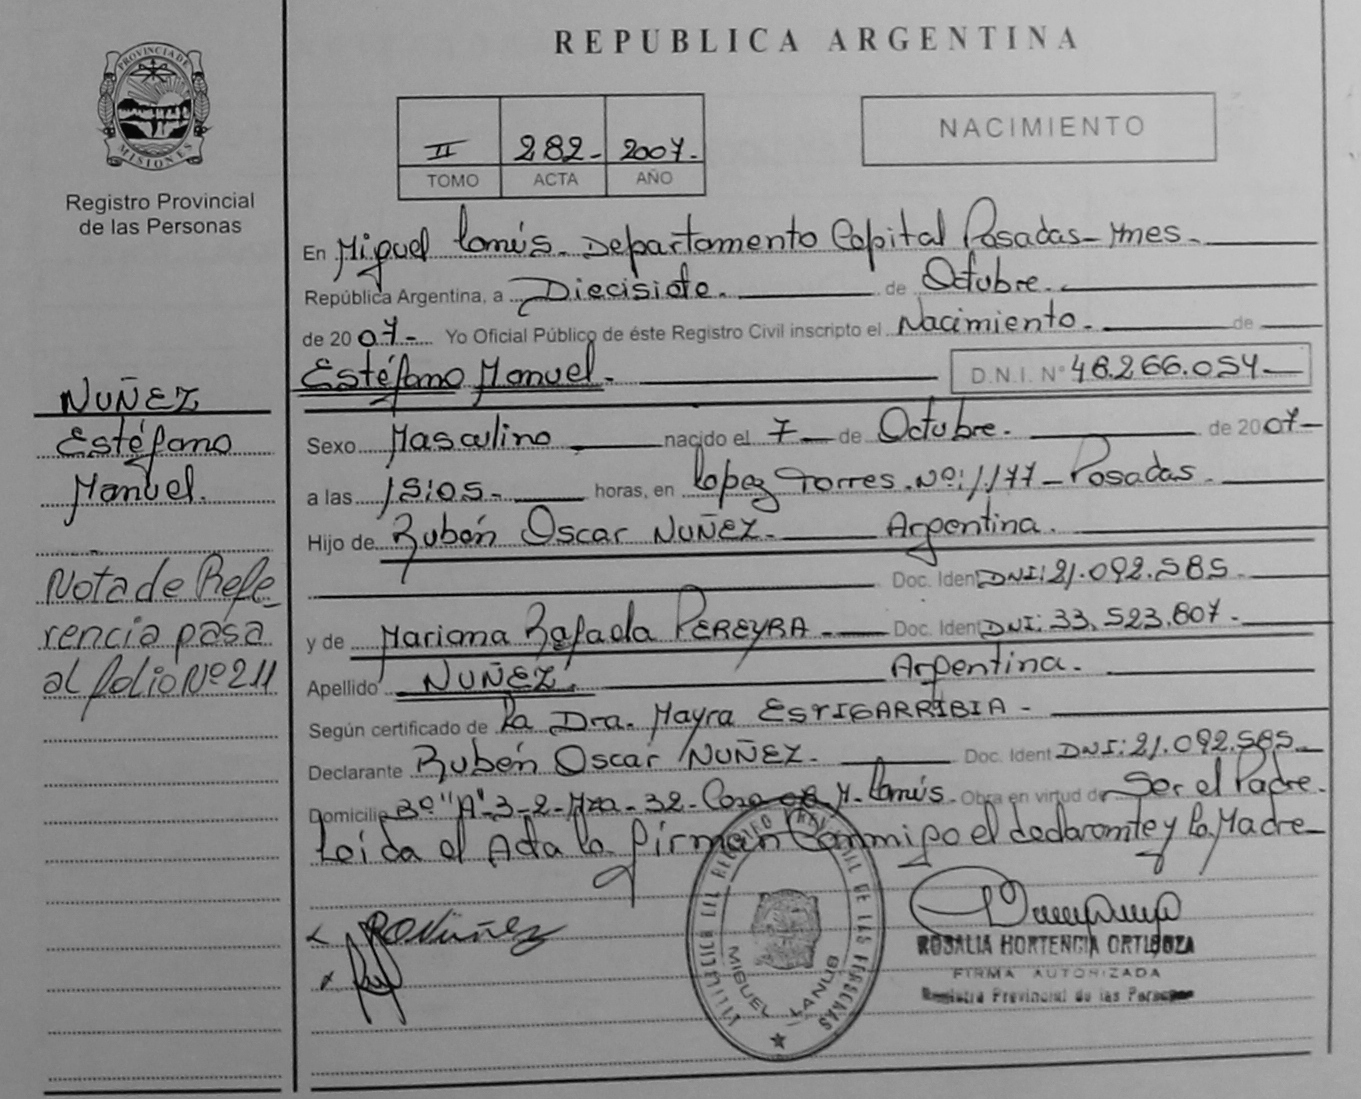 REPUBLICA ARGENTINA
PROVINCIA DE MISIONES
Registro Provincial
de las Personas
II 282- 2007-
TOMO ACTA AÑO
NACIMIENTO
En Miguel Lanús- Departamento Capital Posadas- Mnes-
República Argentina, a Diecisiete. de Octubre.
de 2007- Yo Oficial Público de éste Registro Civil inscripto el Nacimiento- de
Estéfano Manuel- D.N.I. Nº 48.266.054-
Sexo Masculino nacido el 7 de Octubre. de 2007-
a las 15:05- horas, en Lopez Torres Nº: 1177- Posadas.
Hijo de Rubén Oscar NUÑEZ- Argentina.
Doc. Ident DNI: 21.092.585-
y de Mariana Rafaela PEREYRA- Doc. Ident DNI: 33.523.807-
Apellido NUÑEZ Argentina.
Según certificado de La Dra. Mayra ESTIGARRIBIA-
Declarante Rubén Oscar NUÑEZ- Doc. Ident DNI: 21.092.585-
Domicilio 3º "A"-3-2-Mza-32-Casa M. Lanús- Obra en virtud de Ser el Padre.
Leída el Acta la firman Conmigo el declarante y la Madre-
NUÑEZ
Estéfano
Manuel.
Nota de Refe-
rencia pasa
al folio Nº 211
RONuñez
MIGUEL LANUS
ROSALIA HORTENCIA ORTIGOZA
FIRMA AUTORIZADA
Registro Provincial de las Personas